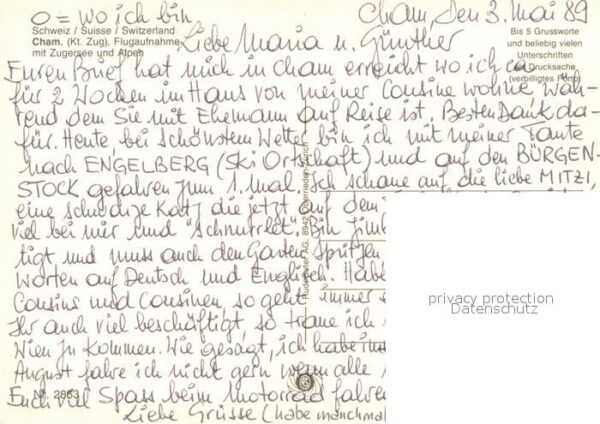 o = wo ich bin
Cham, den 3. Mai 89
Schweiz / Suisse / Switzerland
Cham. (Kt. Zug), Flugaufnahme
mit Zugersee und Alpen
Bis 5 Grussworte
und beliebig vielen
Unterschriften
Drucksache
(verbilligtes Porto)
Liebe Maria u. Günther
Euren Brief hat mich in Cham erreicht wo ich ca.
für 2 Wochen im Haus von meiner Cousine wohne wäh-
rend dem Sie mit Ehemann auf Reise ist. Besten Dank da-
für. Heute bei schönstem Wetter bin ich mit meiner Tante
nach ENGELBERG (Ski Ortschaft) und auf den BÜRGEN-
STOCK gefahren zum 1. mal. Ich schaue auf die liebe MITZI,
eine schwarze Katz die jetzt auf dem
viel bei mir und "schnurrlet". Bin
tigt und muss auch den Garten spritzen
worten auf Deutsch und Englisch. Habe
Cousins und Cousinen, so geht immer
Ihr auch viel beschäftigt, so traue ich
Wien zu kommen. Wie gesagt, ich habe
August fahre ich nicht gern wenn alle
Euch viel Spass beim Motorrad fahren
Nr. 2863
Liebe Grüsse (habe manchmal
privacy protection
Datenschutz